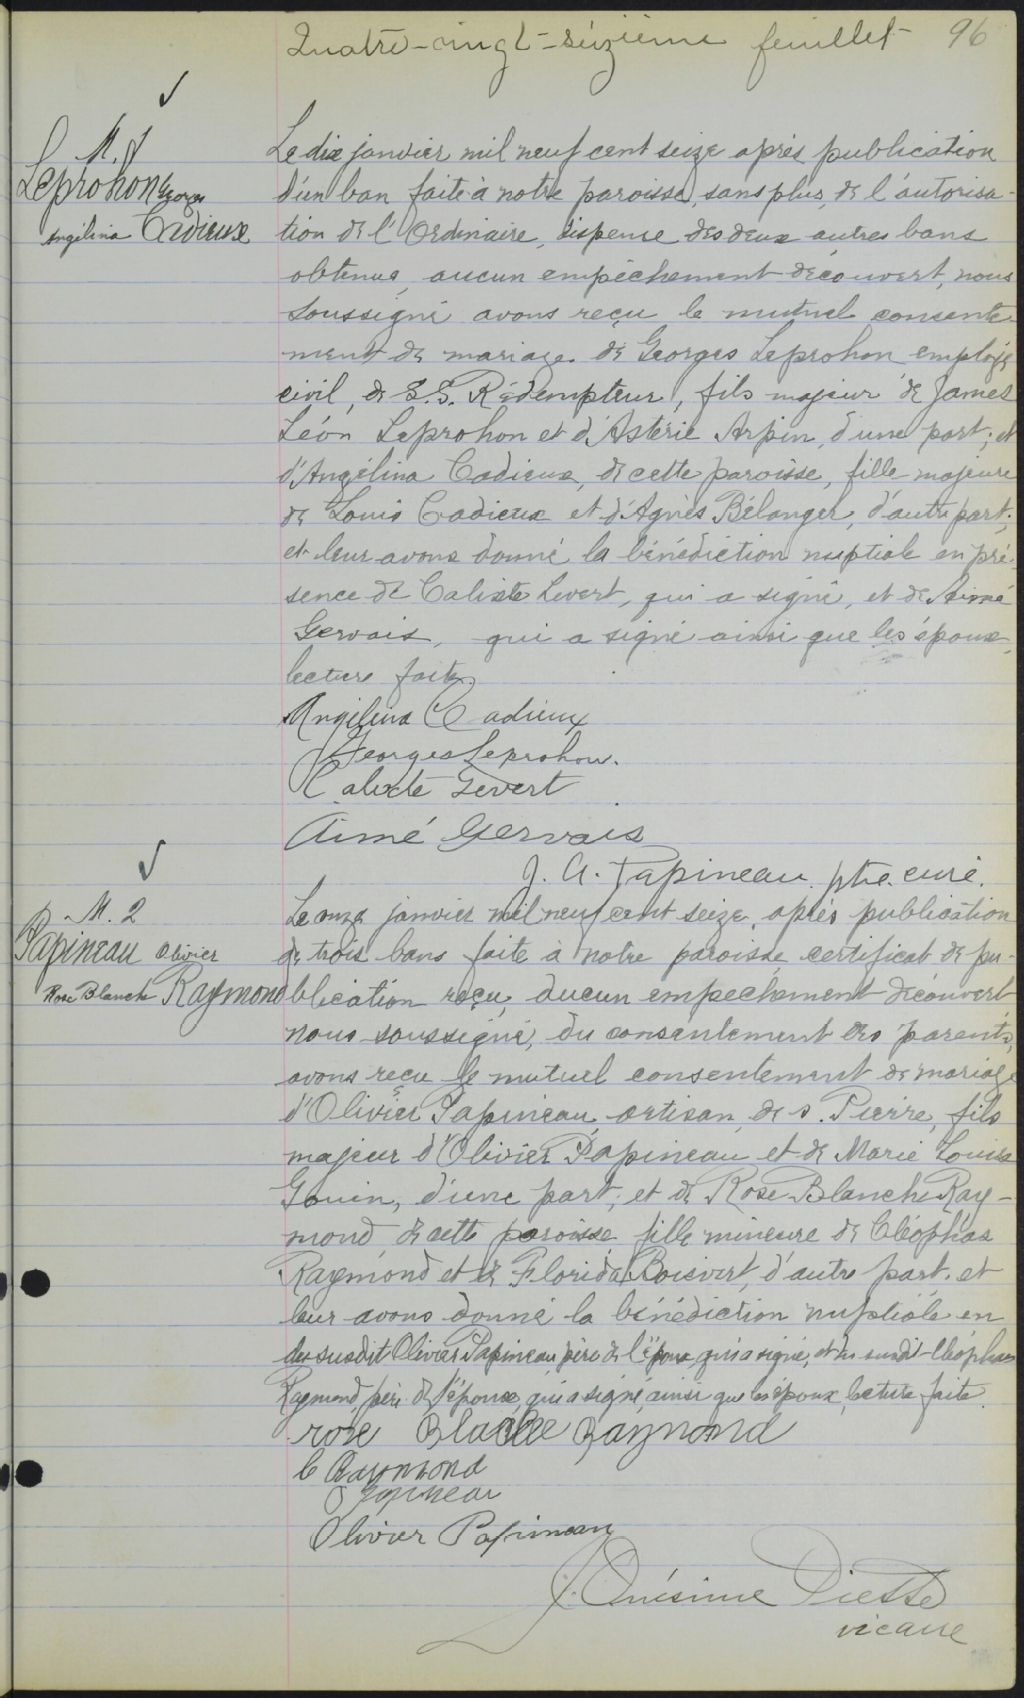 Quatre-vingt-seizième feuillet 96
M. 1
Leprohon Georges
Angélina Cadieux
Le dix janvier mil neuf cent seize après publication
d'un ban faite à notre paroisse, sans plus, de l'autorisa-
tion de l'Ordinaire, dispense des deux autres bans
obtenue, aucun empêchement découvert, nous
soussigné avons reçu le mutuel consente-
ment de mariage de Georges Leprohon employé
civil, de S.S. Rédempteur, fils majeur de James
Léon Leprohon et d'Astérie Arpin, d'une part; et
d'Angélina Cadieux, de cette paroisse, fille majeure
de Louis Cadieux et d'Agnès Bélanger, d'autre part;
et leur avons donné la bénédiction nuptiale en pré-
sence de Calixte Levert, qui a signé, et de Aimé
Gervais, qui a signé ainsi que les époux,
lecture faite.
Angélina Cadieux
Georges Leprohon.
Calixte Levert
Aimé Gervais
J. A. Papineau, ptre. curé.
M. 2
Papineau Olivier
Rose Blanche Raymond
Le onze janvier mil neuf cent seize, après publication
de trois bans faite à notre paroisse certificat de pu-
blication reçu, aucun empêchement découvert
nous soussigné, du consentement des parents,
avons reçu le mutuel consentement de mariage
d'Olivier Papineau, artisan, de S. Pierre, fils
majeur d'Olivier Papineau et de Marie Louise
Gouin, d'une part; et de Rose-Blanche Ray-
mond, de cette paroisse, fille mineure de Cléophas
Raymond et de Florida Boisvert, d'autre part. et
leur avons donné la bénédiction nuptiale en
du susdit Olivier Papineau père de l'époux, qui a signé, et du susdit Cléophas
Raymond, père de l'épouse, qui a signé, ainsi que les époux, lecture faite.
rose Blache Raymond
C Raymond
O Papineau
Olivier Papineau
J. Onésime Piette
vicaire